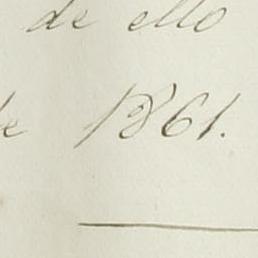 de ello
de 1861.